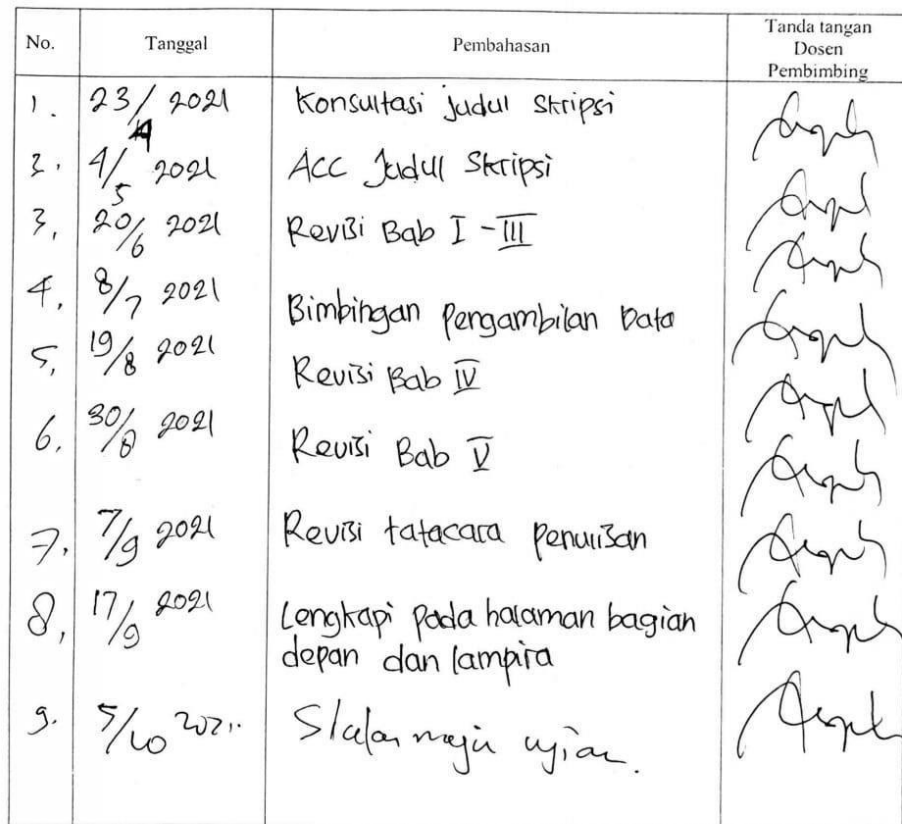 No. Tanggal Pembahasan Tanda tangan
Dosen
Pembimbing
1. 23/4 2021 Konsultasi judul skripsi
2. 4/5 2021 ACC Judul Skripsi
3. 20/6 2021 Revisi Bab I - III
4. 8/7 2021 Bimbingan Pengambilan Data
5. 19/8 2021 Revisi Bab IV
6. 30/8 2021 Revisi Bab V
7. 7/9 2021 Revisi tatacara Penulisan
8. 17/9 2021 Lengkapi pada halaman bagian
depan dan lampira
9. 5/10 2021. Silakan maju ujian.